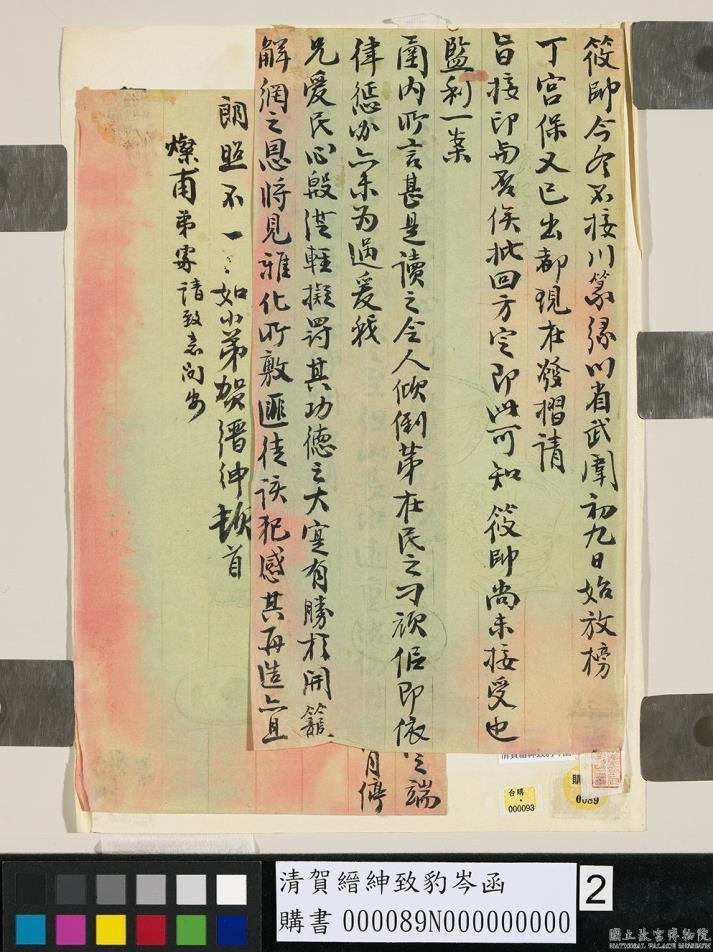 筱帥今冬不接川篆緣川省武闈初九日始放榜
丁宮保又已出都現在發摺請
旨接印與否俟批回方定即此可知筱帥尚未接受也
監利一案
函內所言甚是讀之令人傾倒第在民之刁頑佢即依
律懲辦亦未為過爰我
兄愛民心殷從輕擬罰其功德之大寔有勝於開籠
解網之恩將見雅化所敷匪徒該犯感其再造亦且
朗照不一三如小弟賀縉紳頓首
燦甫弟寄請致意問安
月傳
台購
000093
購
0089
清賀縉紳致豹岑函
購書 000089N000000000
2
國立故宮博物院
NATIONAL PALACE MUSEUM